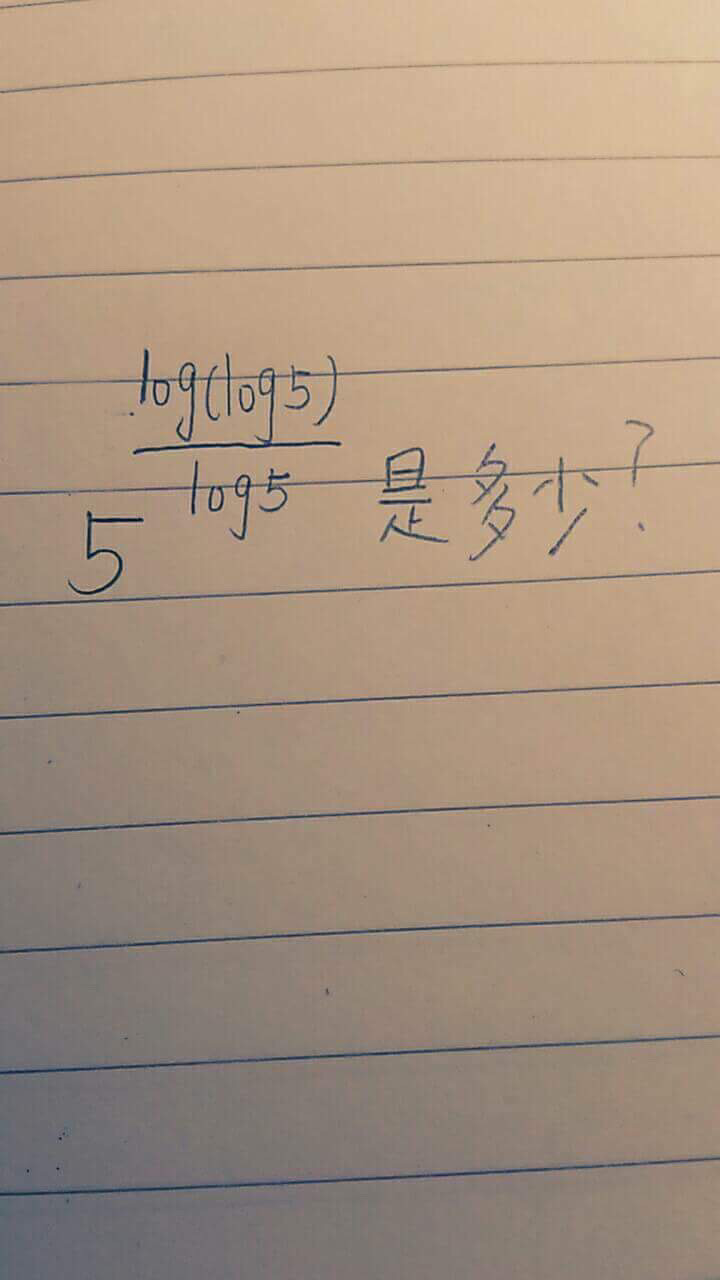 5^{\frac{log(log5)}{log5}} 是多少?